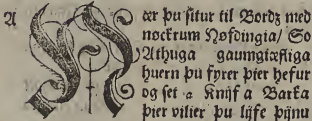 A NÆr þu situr til Bordz med
nockrum Høfdingia/ So
Athuga gaumgiæfliga
huern þu fyrer þier hefur
og set a Knijf a Barka
þier vilier þu lijfe þijnu